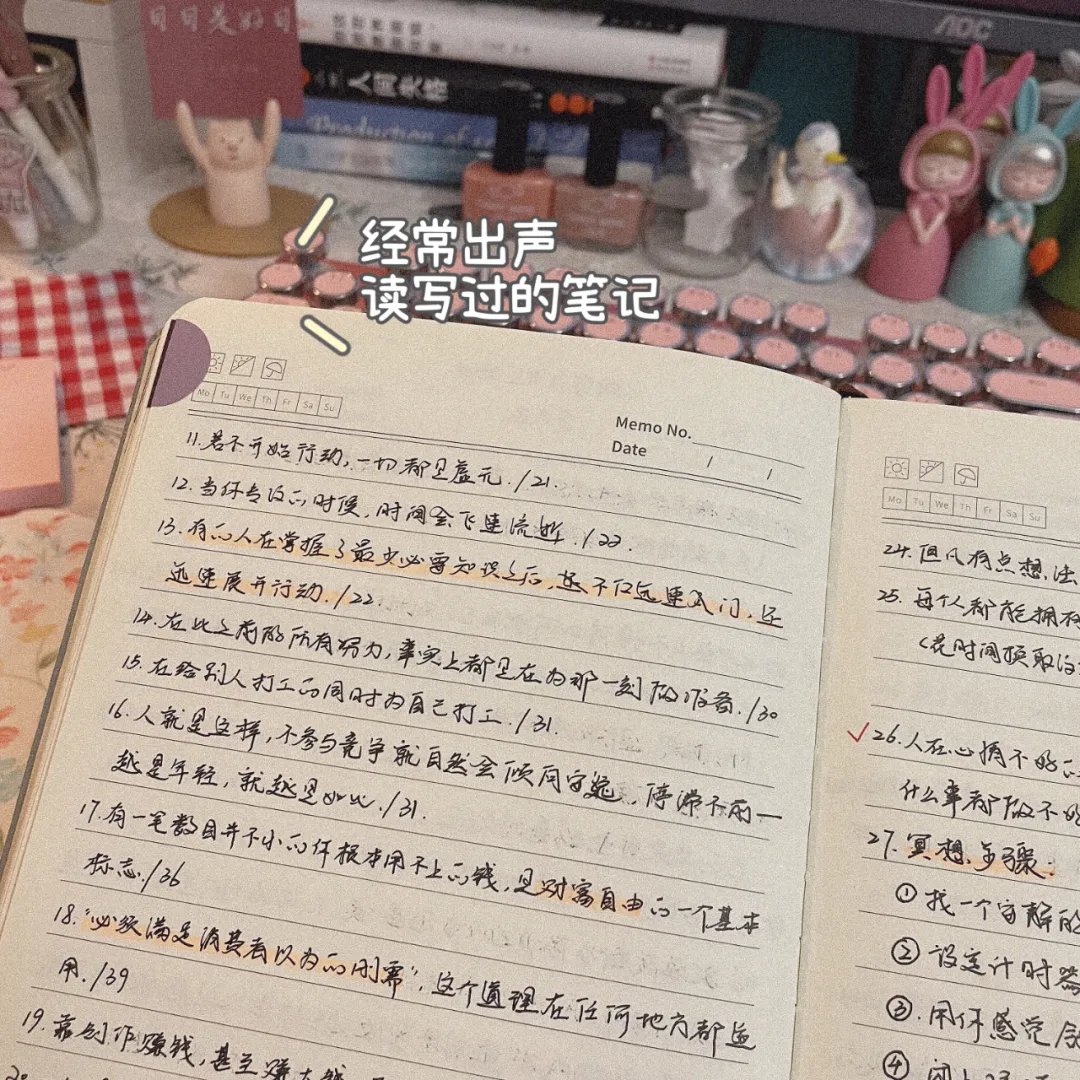 日日是好日
人间失格
Production of
AOC
经常出声
读写过的笔记
Mo Tu We Th Fr Sa Su
Memo No.
Date / /
11. 若不开始行动,一切都是虚无./21.
12. 当你专注的时候,时间会飞速流逝./22.
13. 有的人在掌握了最少必要知识之后,还不仅迅速入门,还
迅速展开行动./22
14. 在此之前的所有努力,事实上都是在为那一刻做准备./30
15. 在给别人打工的同时为自己打工./31.
16. 人就是这样,不参与竞争就自然会倾向守旧,停滞不前一
越是年轻,就越是如此./31.
17. 有一笔数目并不小的你根本用不上的钱,是财富自由的一个基本
标志./36
18. “必须满足消费者以为的刚需”,这个道理在任何地方都适
用./39
19. 靠创作赚钱,甚至赚大钱
20.
Mo Tu We Th Fr Sa Su
24. 但凡有点想法
25. 每个人都能拥有
(花时间换取
26. 人在心情不好的
什么事都做不好
27. 冥想步骤:
① 找一个
② 设定计时器
③. 用你感觉
④ 闭上